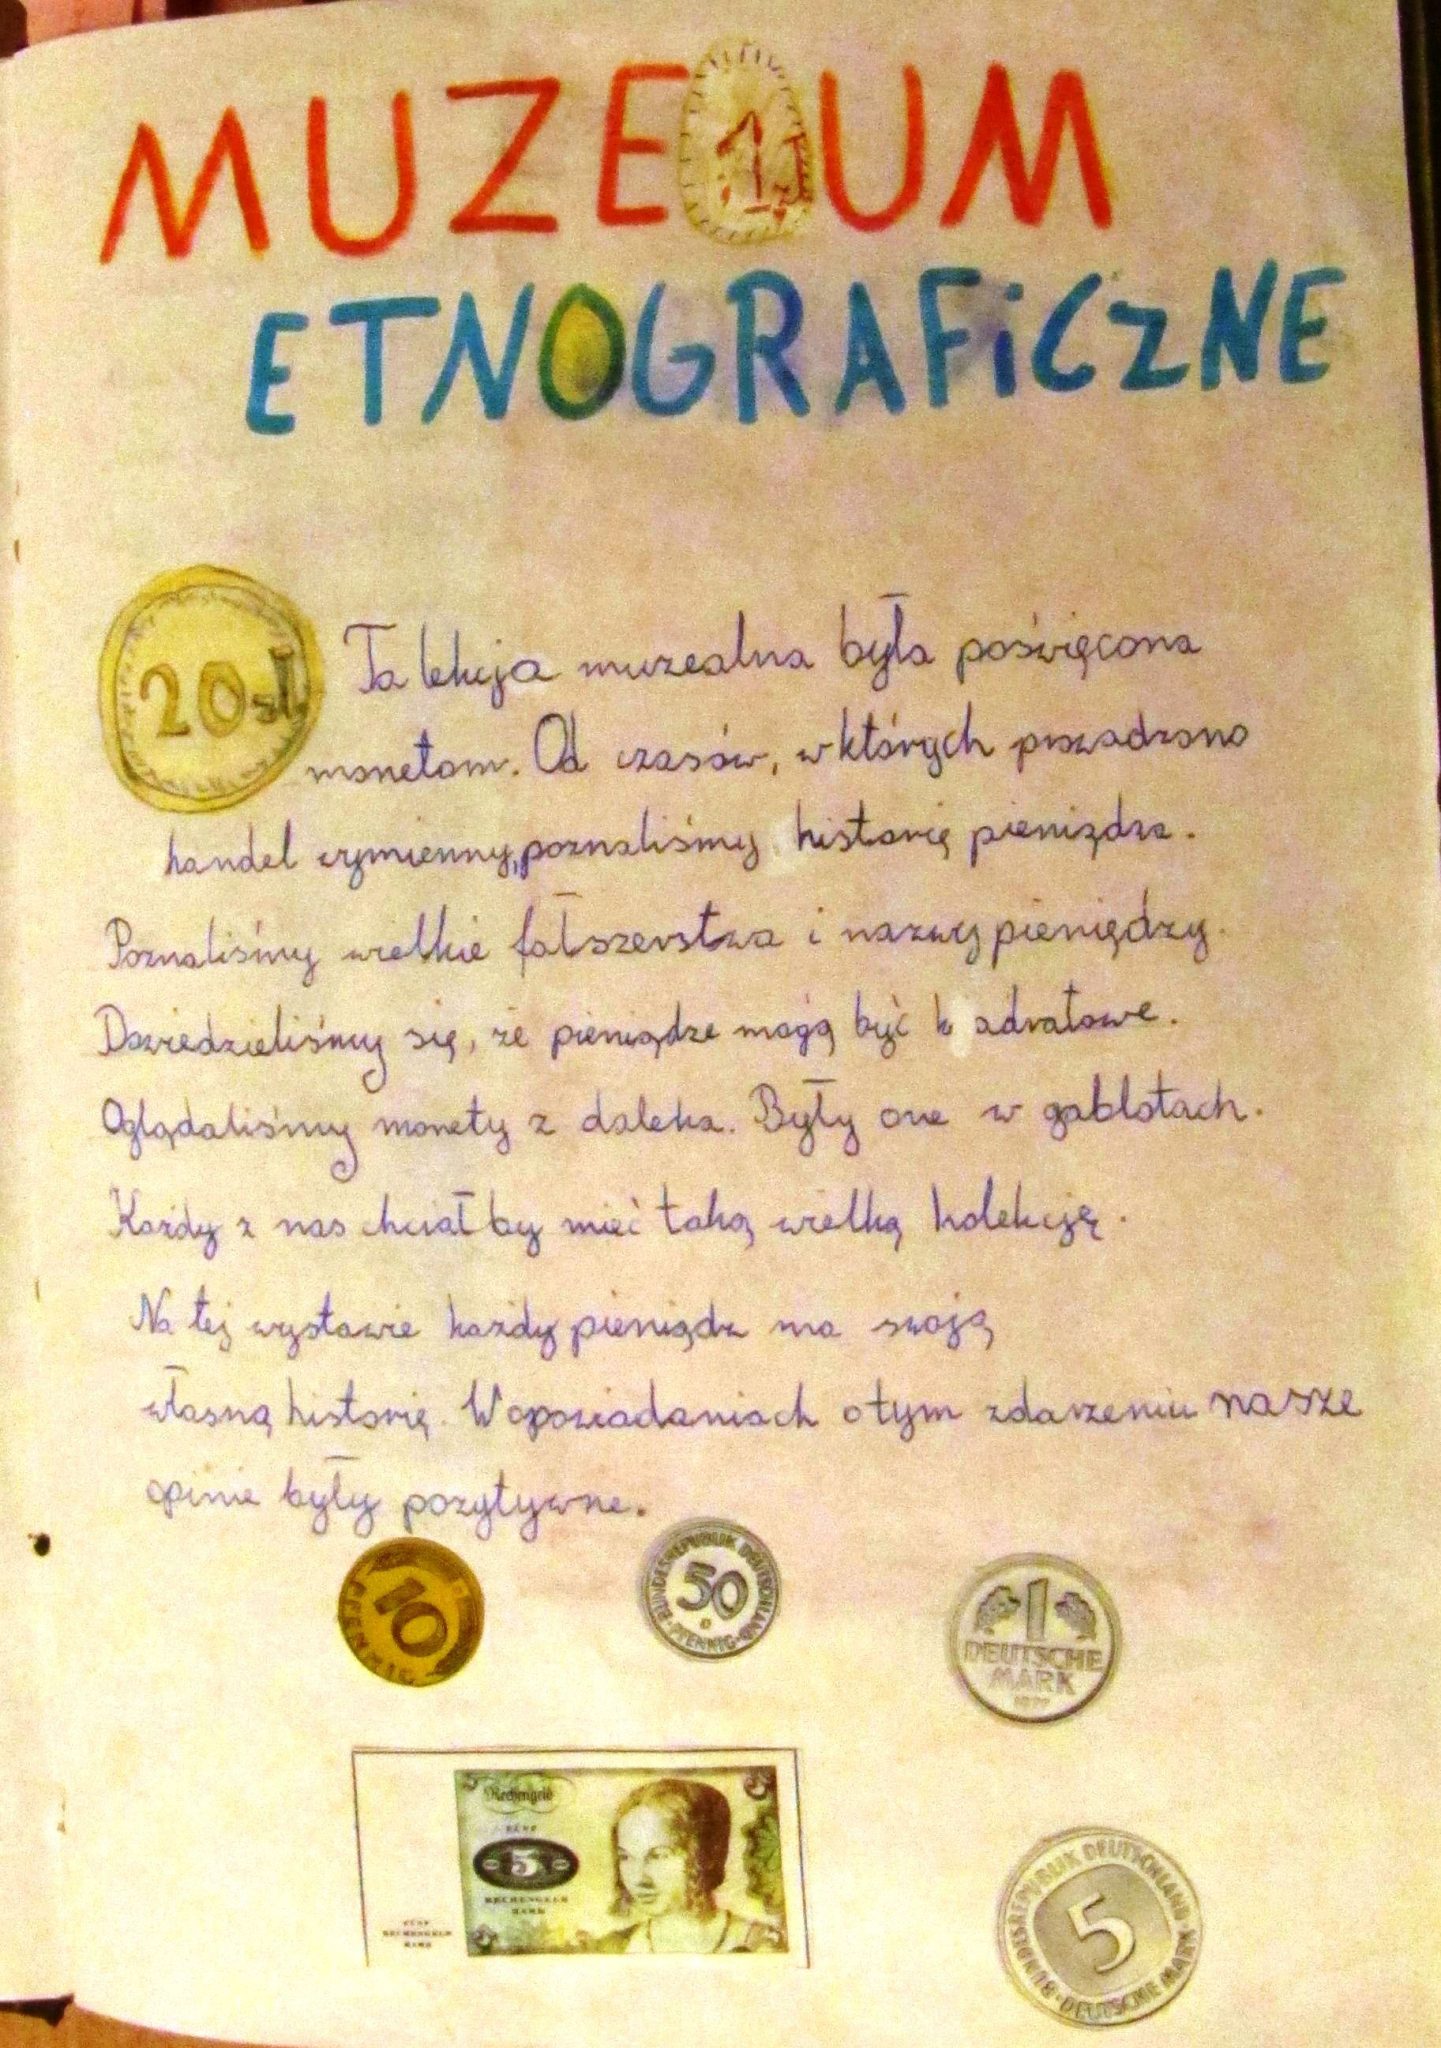 MUZEUM
ETNOGRAFiCZNE
20 zł
Ta lekcja muzealna była poświęcona
monetom. Od czasów, w których prowadzono
handel wymienny, poznaliśmy historię pieniądza.
Poznaliśmy wielkie fałszerstwa i nazwy pieniędzy.
Dowiedzieliśmy się, że pieniądze mogą być kwadratowe.
Oglądaliśmy monety z daleka. Były one w gablotach.
Każdy z nas chciałby mieć taką wielką kolekcję.
Na tej wystawie każdy pieniądz ma swoją
własną historię. W opowiadaniach o tym zdarzeniu nasze
opinie były pozytywne.
10
PFENNIG
BUNDESREPUBLIK DEUTSCHLAND
50
PFENNIG
1
DEUTSCHE
MARK
Rechengeld
5
FÜNF
5
RECHENGELD
MARK
FÜNF
RECHENGELD
MARK
BUNDESREPUBLIK DEUTSCHLAND
5
DEUTSCHE MARK